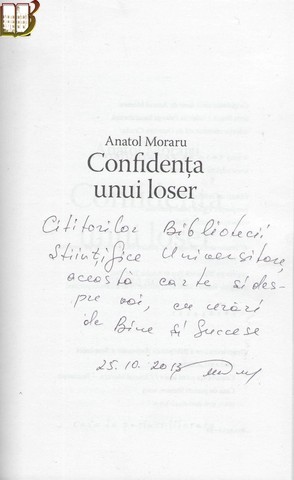 Anatol Moraru
Confidența
unui loser
Cititorilor Bibliotecii
Științifice Universitare,
această carte și des-
pre voi, cu urări
de Bine și Succese
25.10.2013